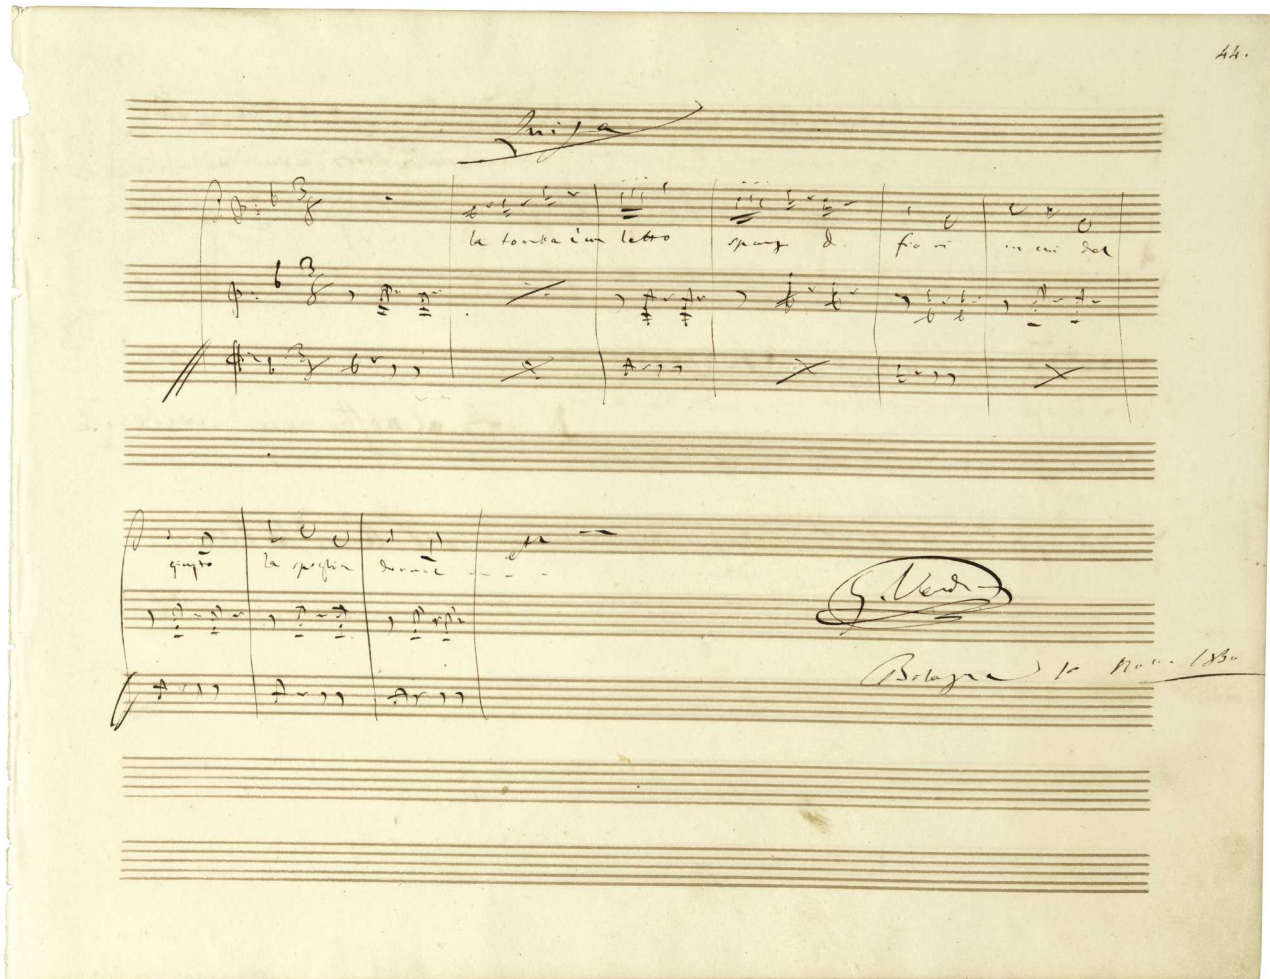 44.
Luisa
la tomba è un letto sparso di fiori in cui del
giusto la spoglia dorme - - -
G. Verdi
Bologna Nov. 18